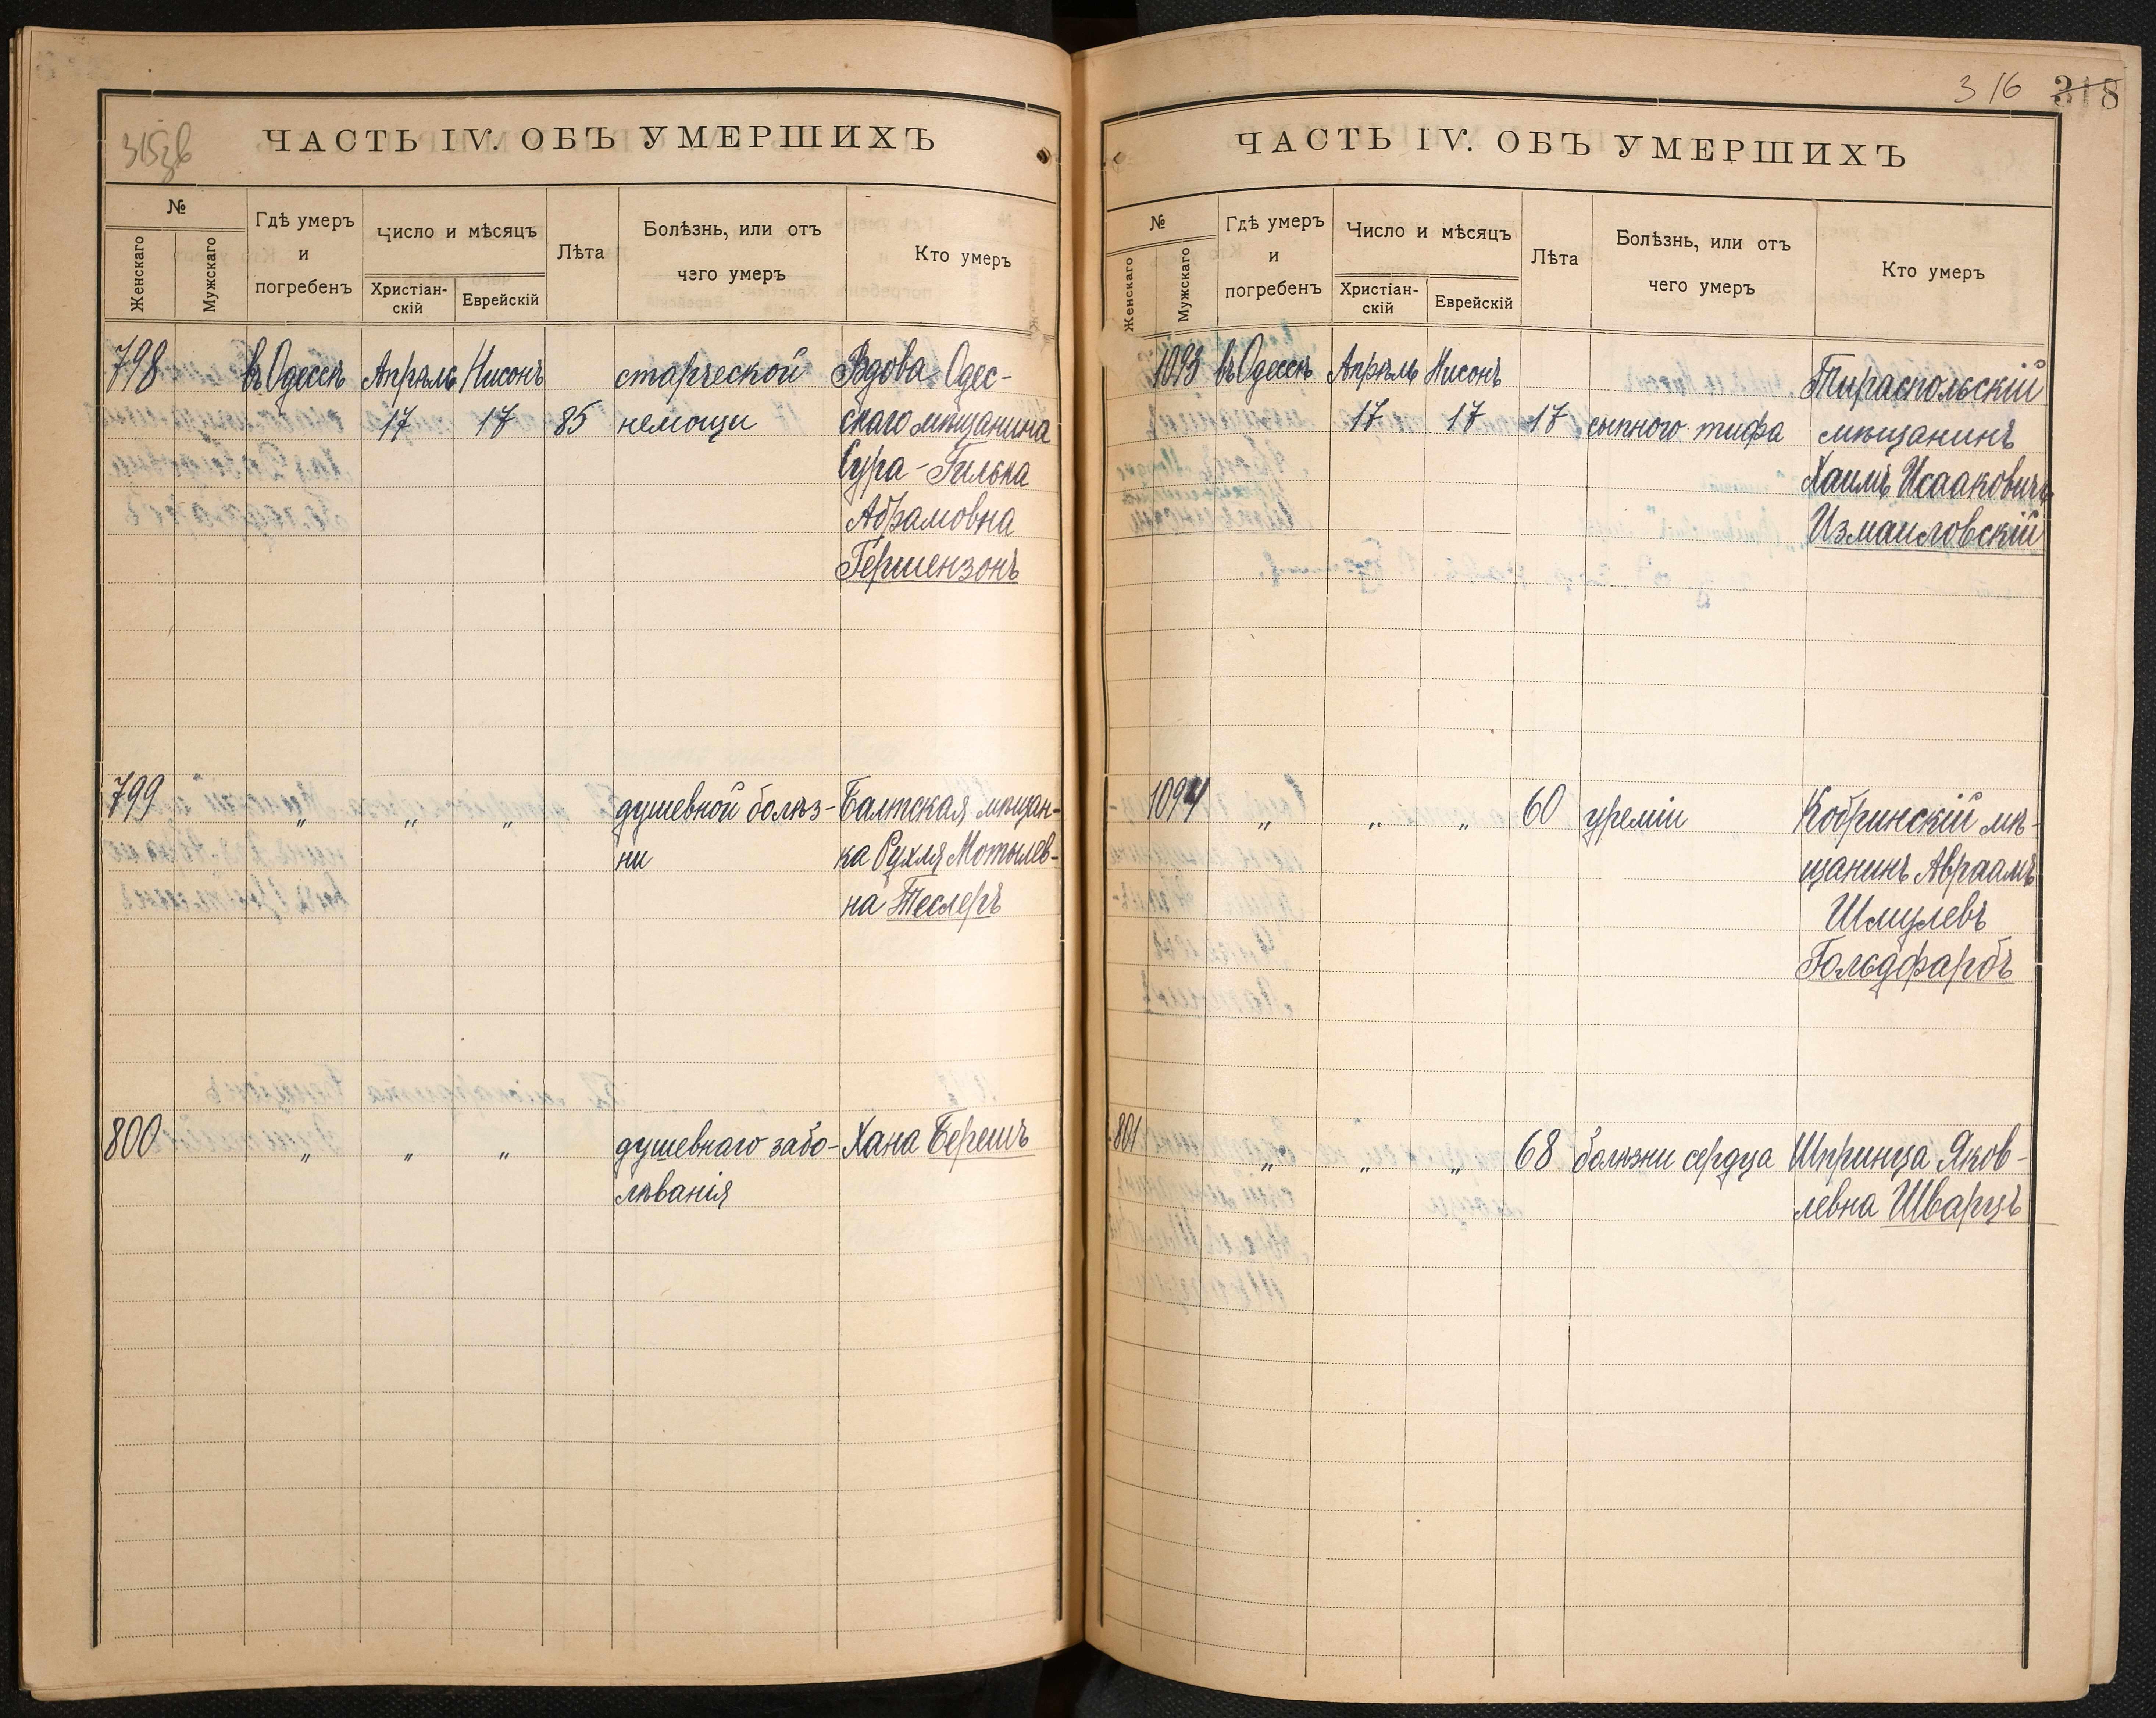 315зв
ЧАСТЬ IV. ОБЪ УМЕРШИХЪ
№
Женскаго
Мужскаго
Гдѣ умеръ
и
погребенъ
Число и мѣсяцъ
Христіан-
скій
Еврейскій
Лѣта
Болѣзнь, или отъ
чего умеръ
Кто умеръ
798 въ Одессѣ Апрѣль Нисонъ старческой Вдова Одес-
17 17 85 немощи скаго мѣщанина
Сура-Гилька
Абрамовна
Гершензонъ
799 " " " душевной болѣз- Балтская мѣщан-
ни ка Рухля Мотылев-
на Теслеръ
800 " " " душевнаго забо- Хана Берешъ
лѣванія
316 318
ЧАСТЬ IV. ОБЪ УМЕРШИХЪ
№
Женскаго
Мужскаго
Гдѣ умеръ
и
погребенъ
Число и мѣсяцъ
Христіан-
скій
Еврейскій
Лѣта
Болѣзнь, или отъ
чего умеръ
Кто умеръ
1093 въ Одессѣ Апрѣль Нисонъ Тираспольскій
17 17 17 сыпного тифа мѣщанинъ
Хаимъ Исааковичъ
Измаиловскій
1094 " " " 60 уреміи Кобринскій мѣ-
щанинъ Авраамъ
Шмулевъ
Гольдфарбъ
801 " " " 68 болѣзни сердца Шпринца Яков-
левна Шварцъ